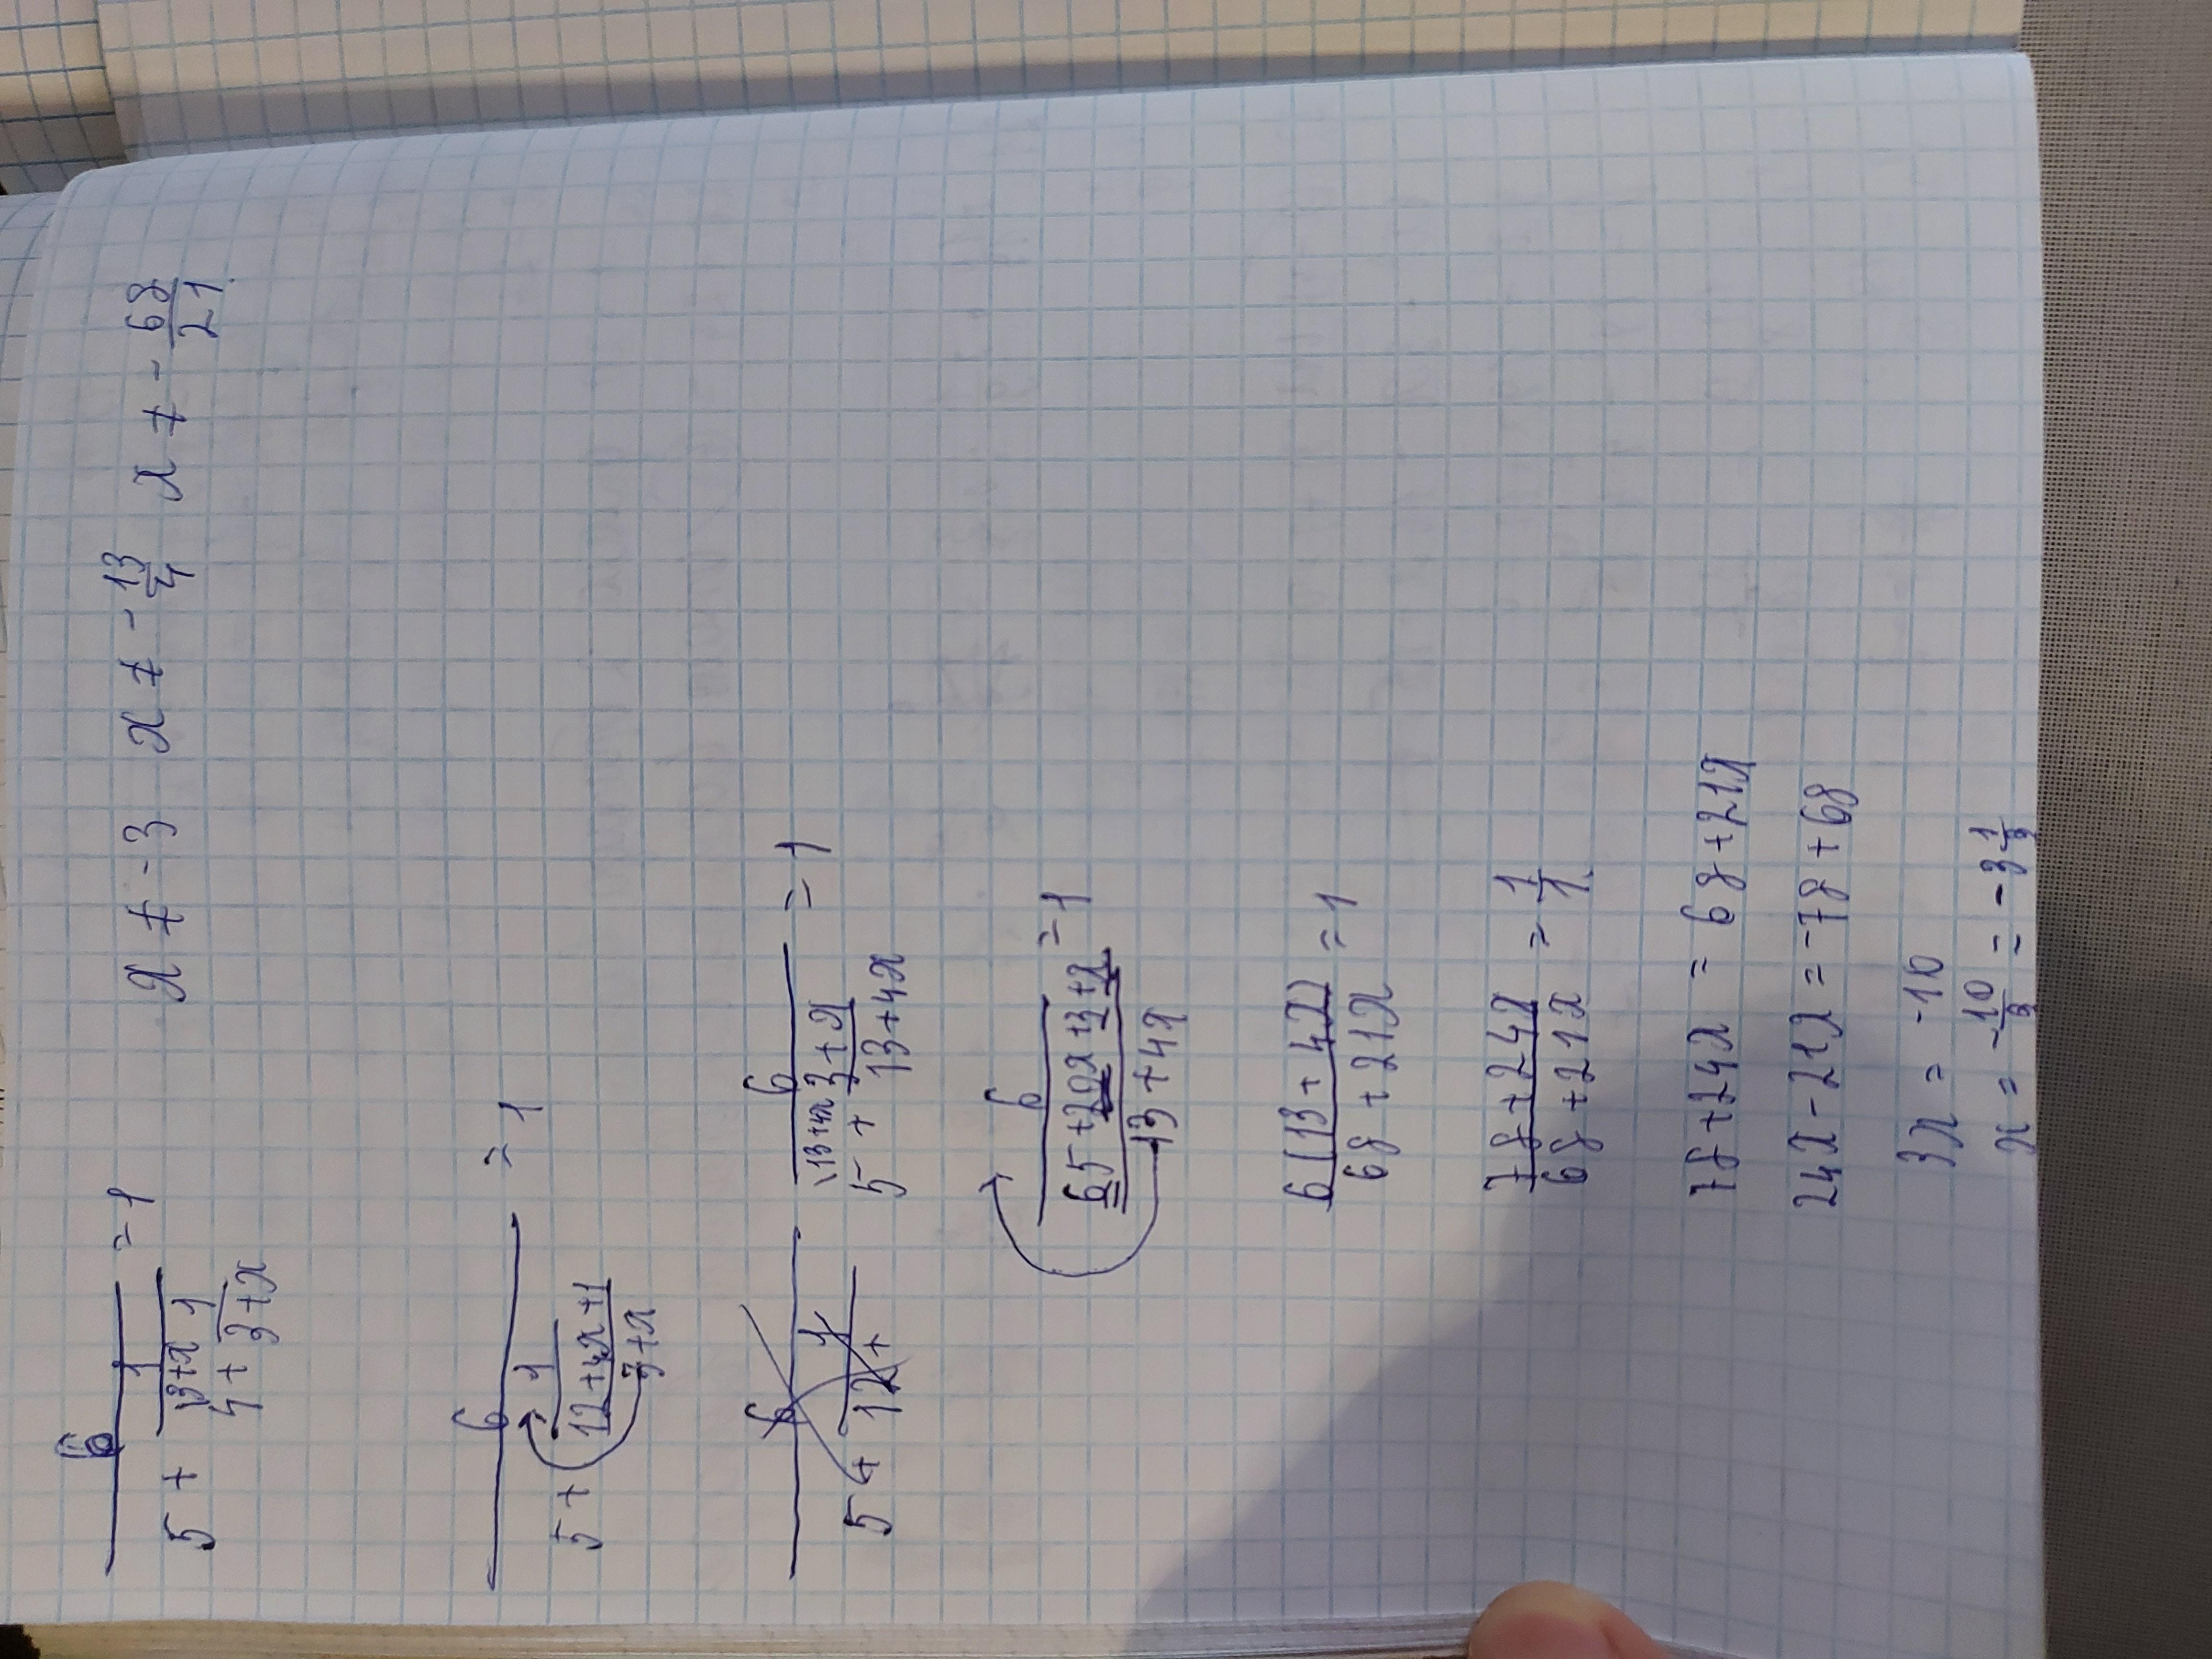 6 / (5 + 1 / (4 \3+x + 1/(3+x))) = 1    x ≠ -3    x ≠ -13/4    x ≠ -68/21
6 / (5 + 1 / ((12+4x+1)/(3+x))) = 1
6 / (5 + 1 / (12+    6 / (5 \13+4x + (3+x)/(13+4x)) = 1
6 / ((65+20x+3+x)/(13+4x)) = 1
6(13+4x) / (68+21x) = 1
(78+24x) / (68+21x) = 1/1
78+24x = 68+21x
24x-21x = -78+68
3x = -10
x = -10/3 = -3 1/3